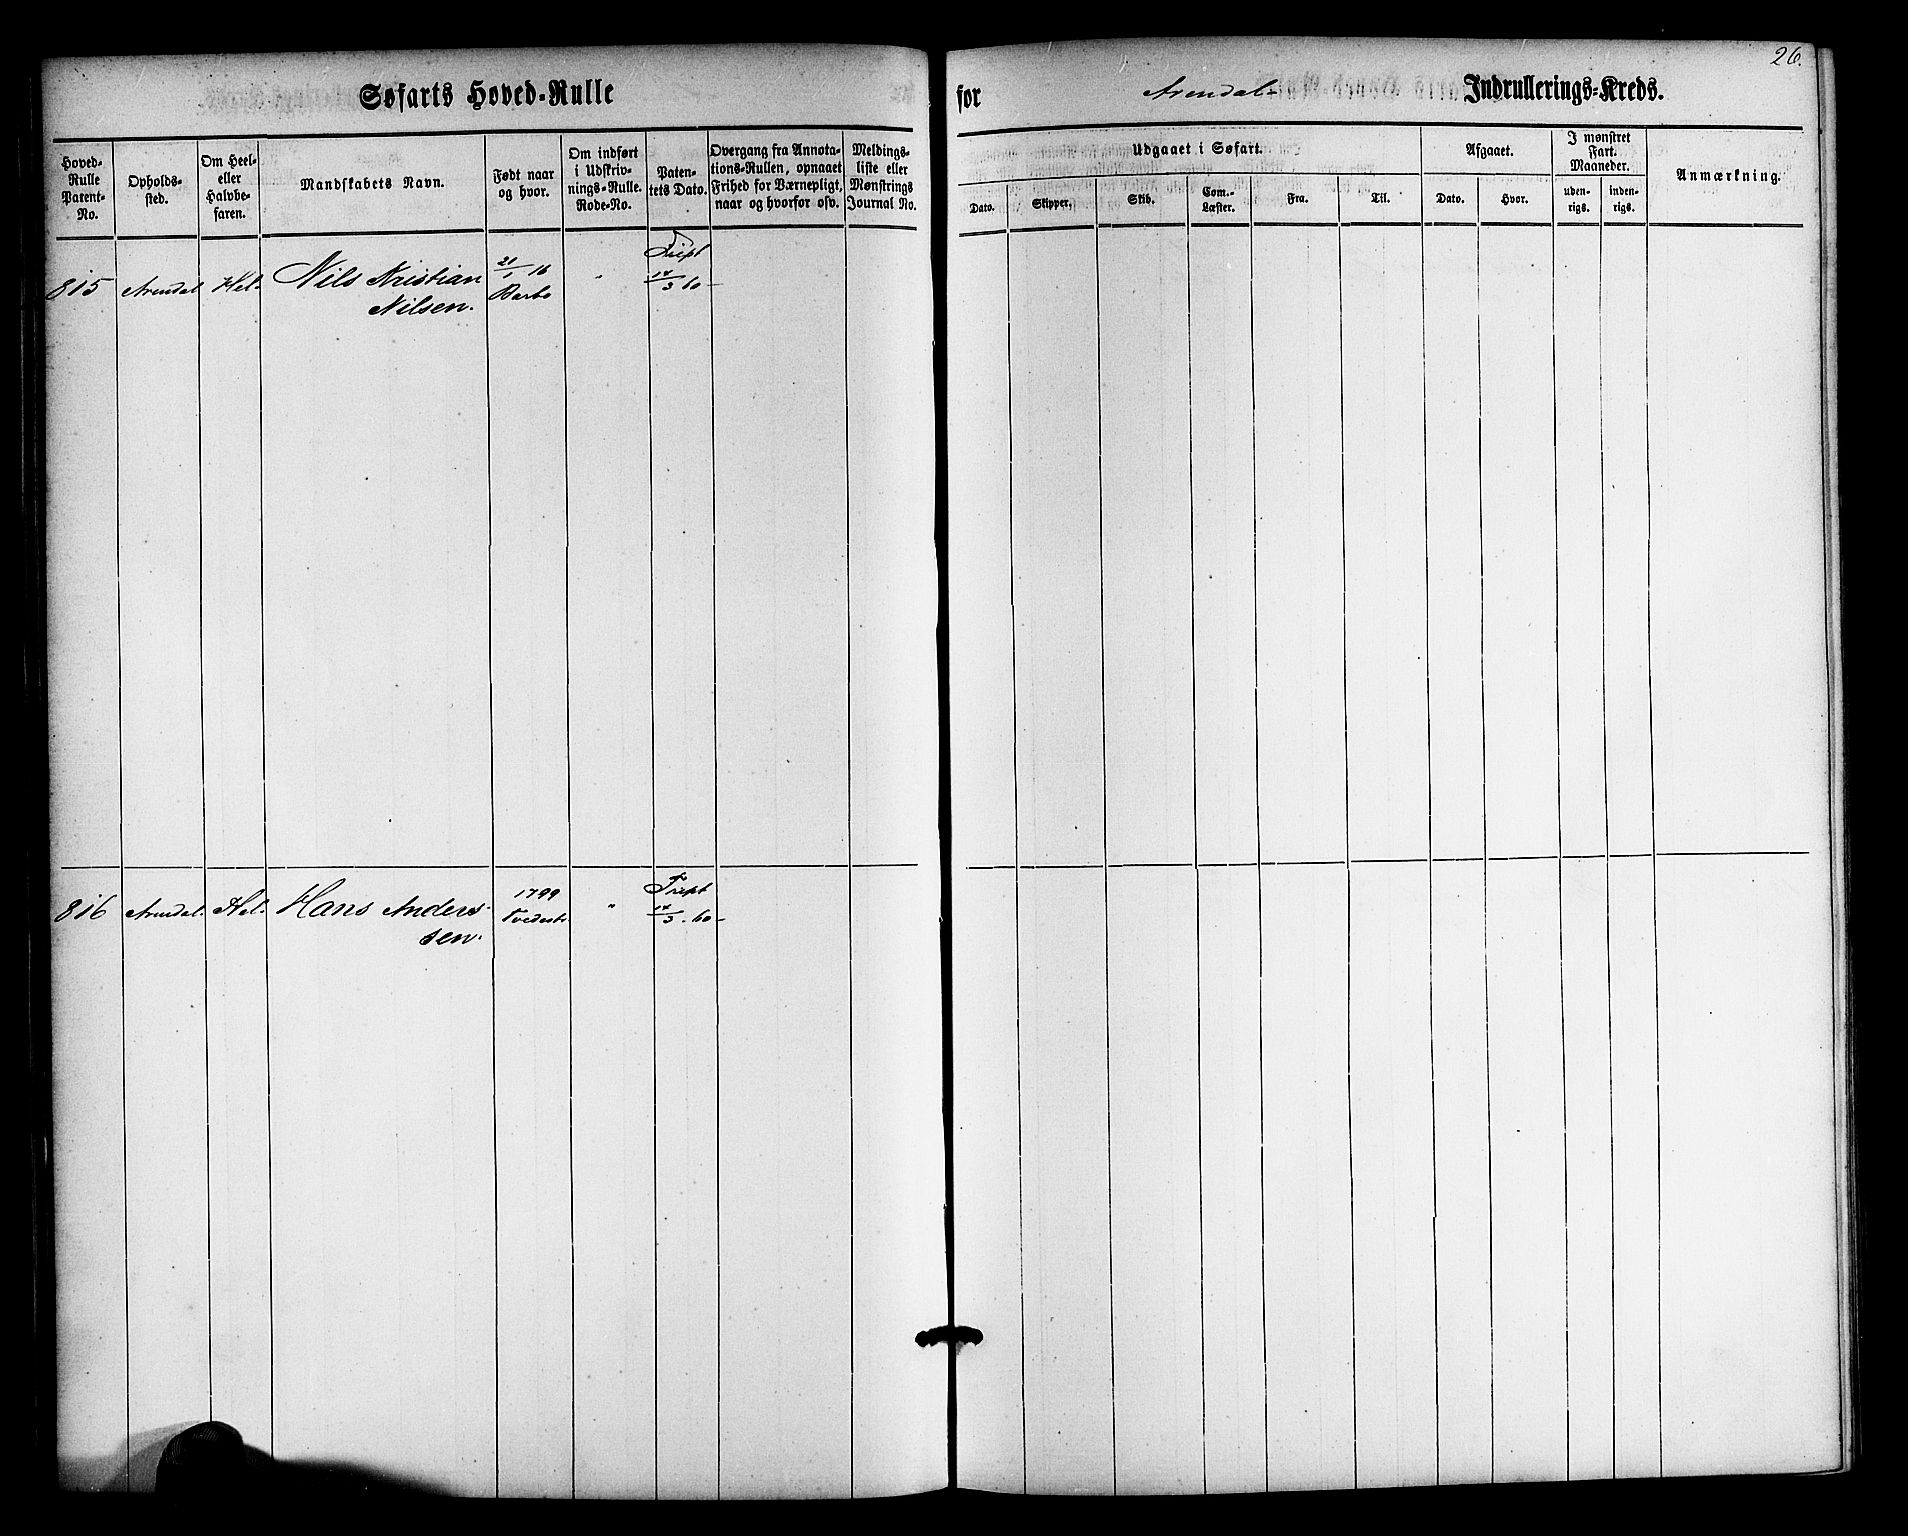 26.
Søfarts Hoved-Rulle
for Arendal- Indrullerings-Kreds.
Hoved-
Rulle
Patent-
No.
Opholds-
sted.
Om Heel-
eller
Halvbe-
faren.
Mandskabets Navn.
Født naar
og hvor.
Om indført
i Udskriv-
nings-Rulle.
Rode-No.
Paten-
tets Dato.
Overgang fra Annota-
tions-Rullen, opnaaet
Frihed for Værnepligt,
naar og hvorfor osv.
Meldings-
liste eller
Mønstrings
Journal No.
Udgaaet i Søfart.
Dato.
Skipper.
Skib.
Com.-
Læster.
Fra.
Til.
Afgaaet.
Dato.
Hvor.
I mønstret
Fart.
Maaneder.
uden-
rigs.
inden-
rigs.
Anmærkning.
815 Arendal Hel. Nils Kristian
Nilsen.
21/1 16
Barbo
"
Fript
14/3 60-
816 Arendal. Hel. Hans Anders-
sen.
1799
Tvedestr.
"
Fript
14/3. 60-